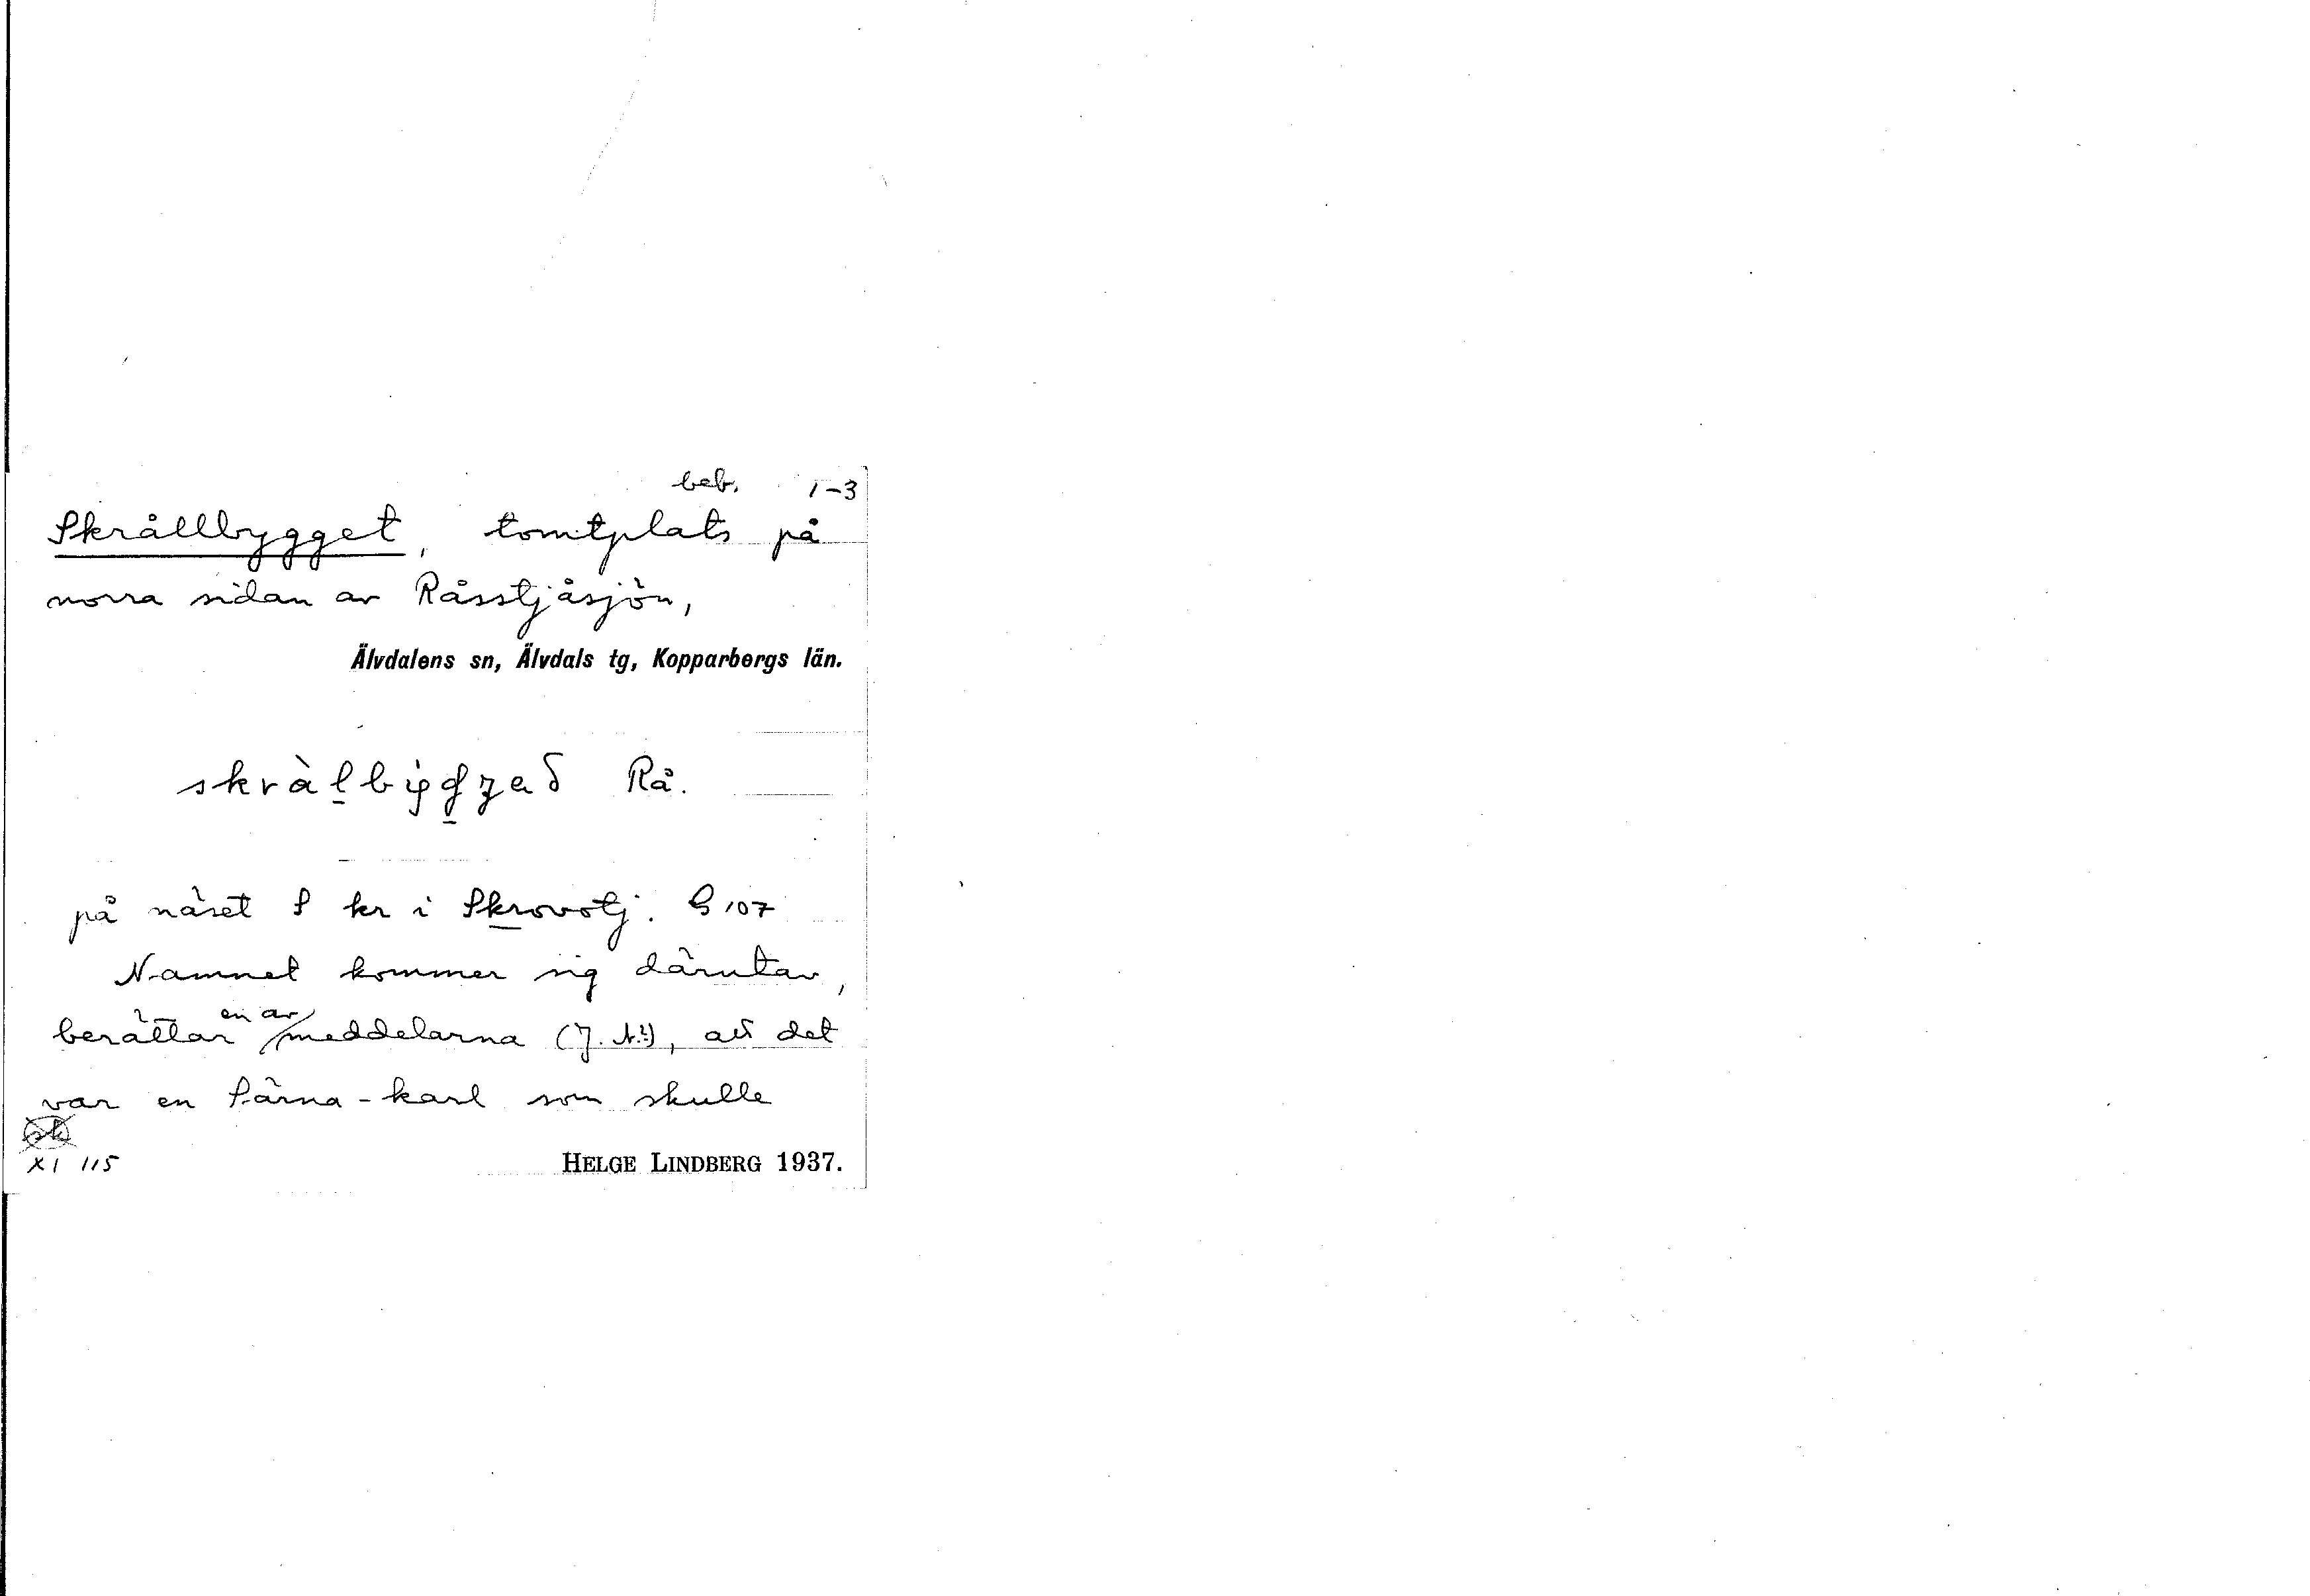 beb. 1-3
Skrållbygget, tomtplats på
norra sidan av Råsstjåsjön,
Älvdalens sn, Älvdals tg, Kopparbergs län.
Rå.
på näset S kr i Skrovotj. G 107
Namnet kommer sig därutav,
berättar en av meddelarna (J. N:), att det
var en Särna-karl som skulle
XI 115
HELGE LINDBERG 1937.